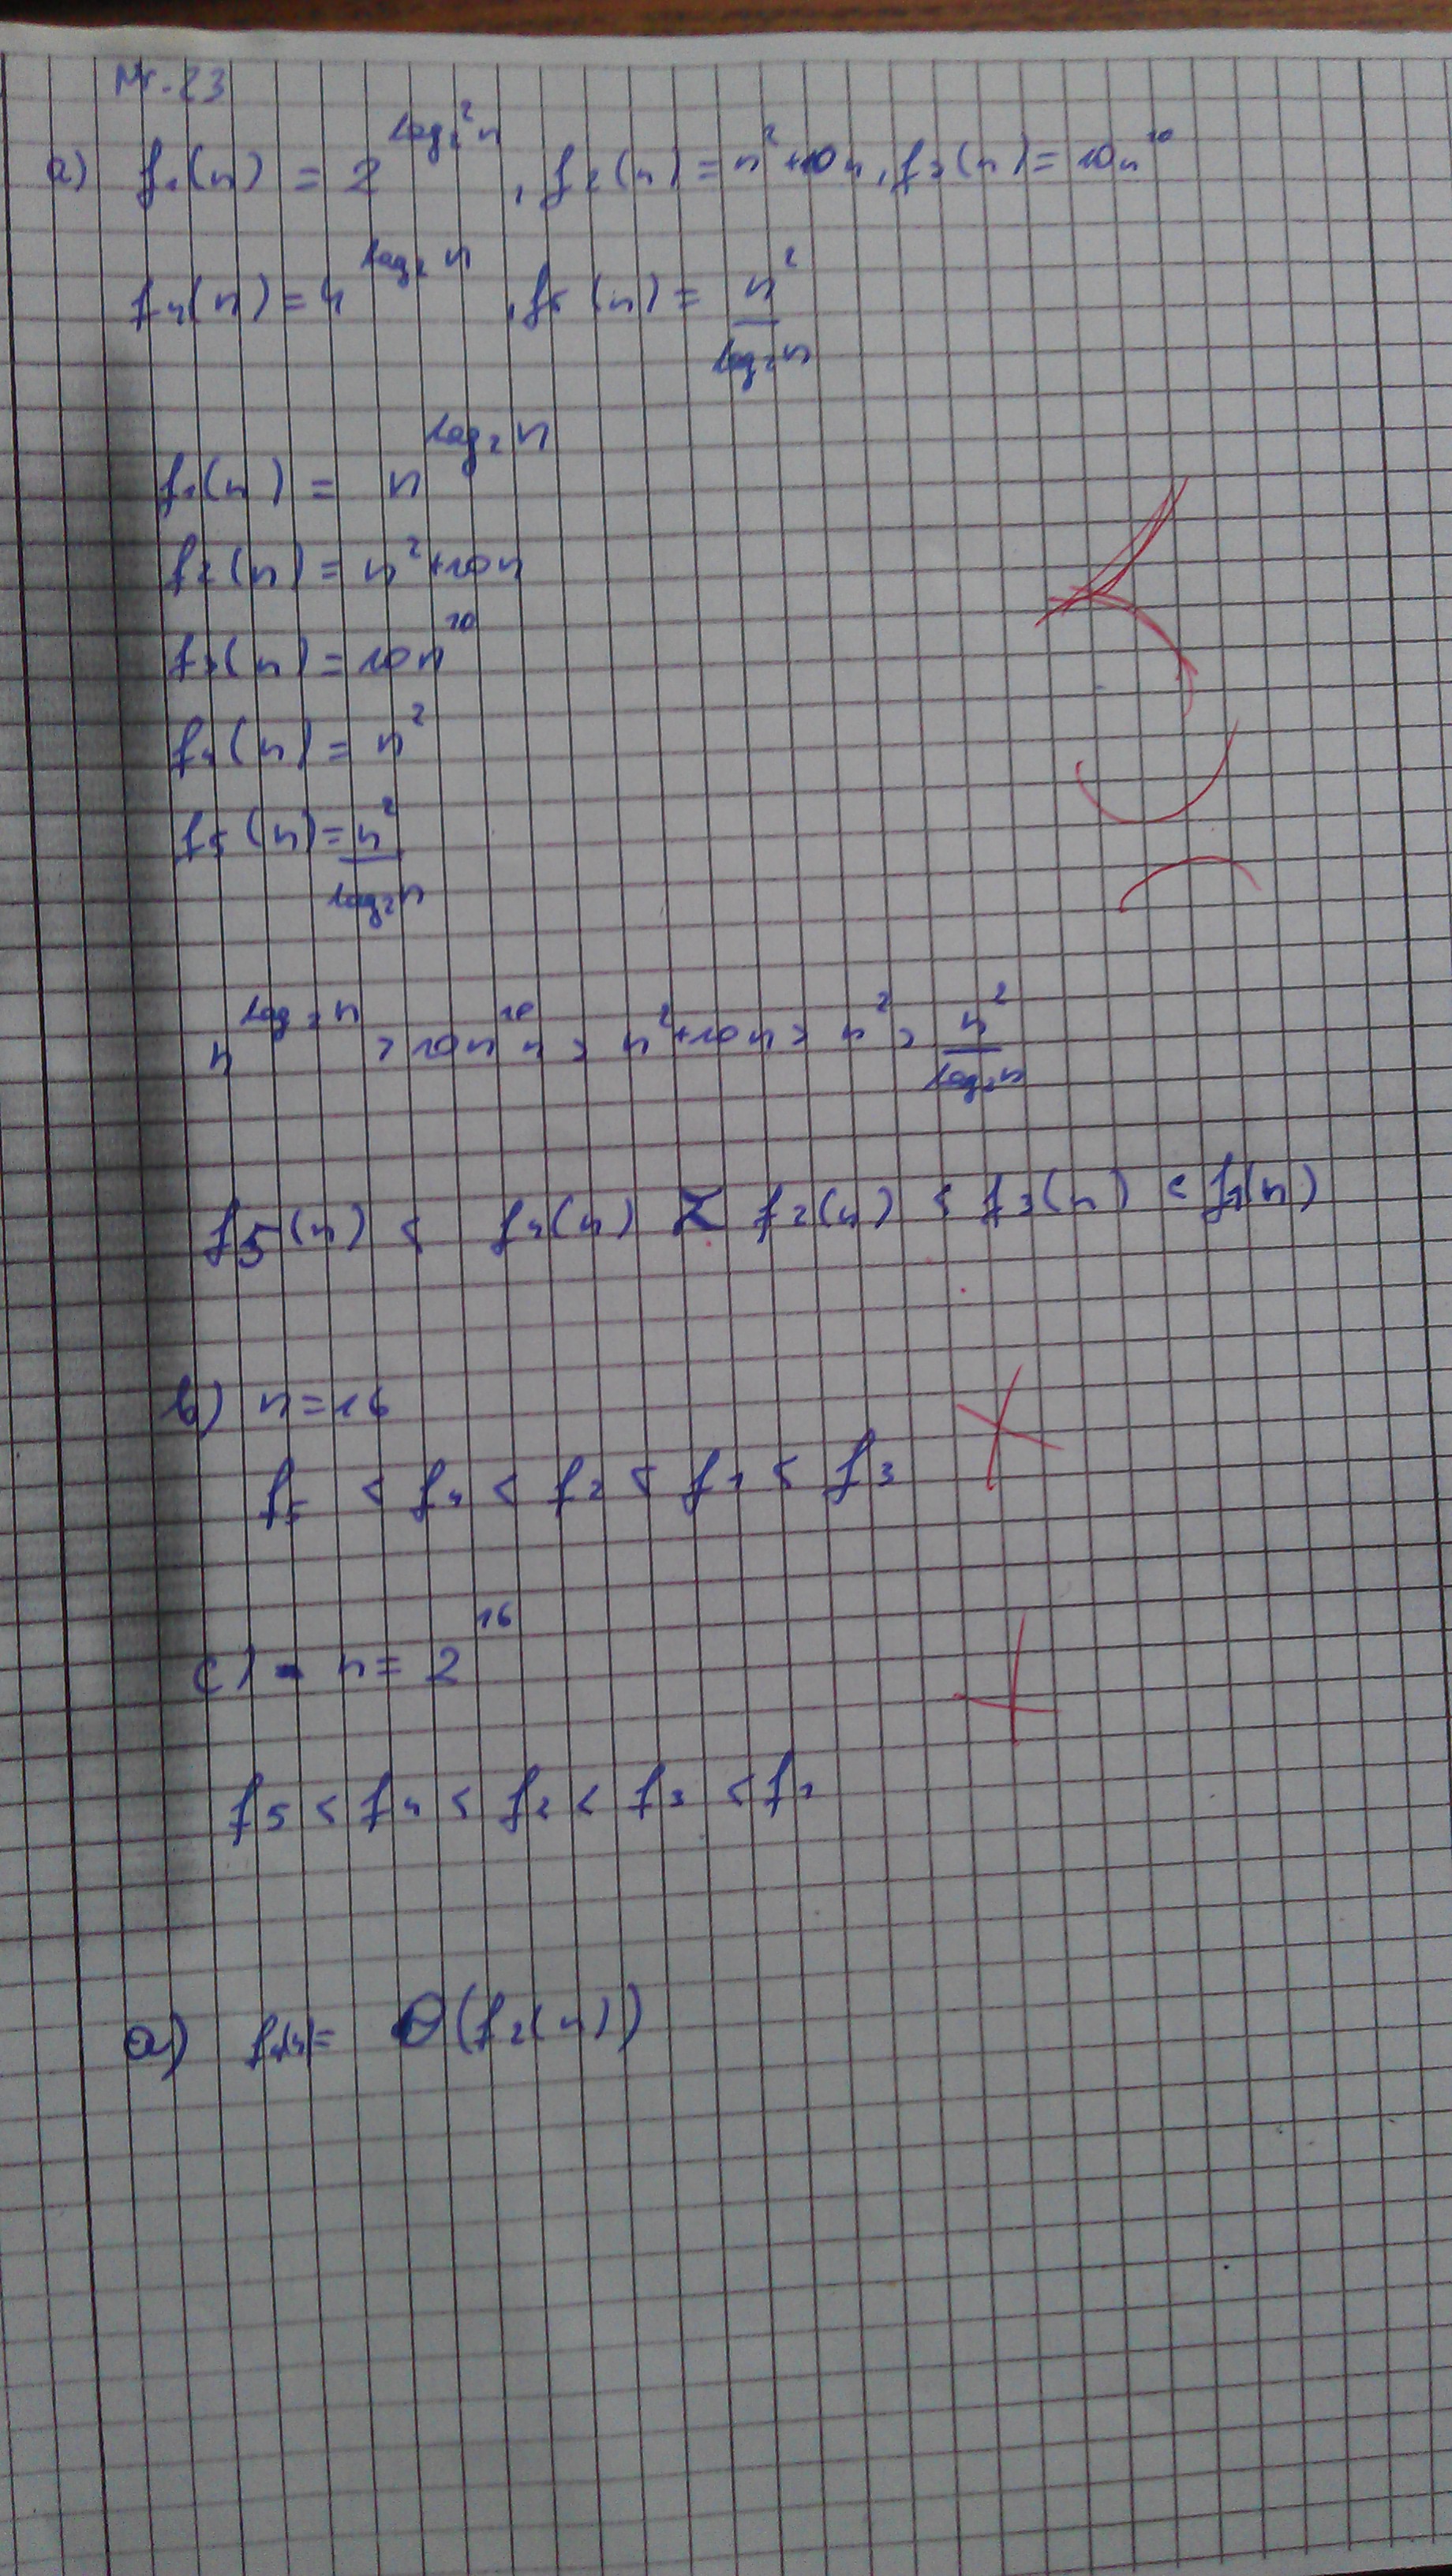 Nr. 23
a) f₁(n) = 2^(log₂² n) , f₂(n) = n² + 10n , f₃(n) = 10n¹⁰
f₄(n) = 4^(log₂ n) , f₅(n) = n² / log₂n
f₁(n) = n^(log₂ n)
f₂(n) = n² + 10n
f₃(n) = 10n¹⁰
f₄(n) = n²
f₅(n) = n² / log₂n
n^(log₂ n) > 10n¹⁰ > n² + 10n > n² > n² / log₂n
f5(n) < f₄(n) f₂(n) < f₃(n) < f₁(n)
b) n = 16
f₅ < f₄ < f₂ < f₁ < f₃
c) n = 2¹⁶
f5 < f₄ < f₂ < f₃ < f₁
a) f₄(n) = Θ(f₂(n))